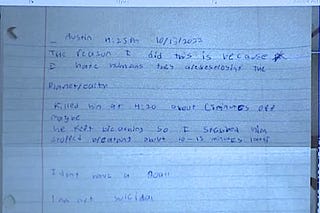 Austin 4:25 PM 10/13/2022
The reason I did this is because
I hate humans they are destroying the
Planet/earth
Killed him at 4:20 about minutes off
maybe
he kept screaming so I stabbed him
weapons about 10-15 minutes later
I don't have a goal!
I am not suicidal